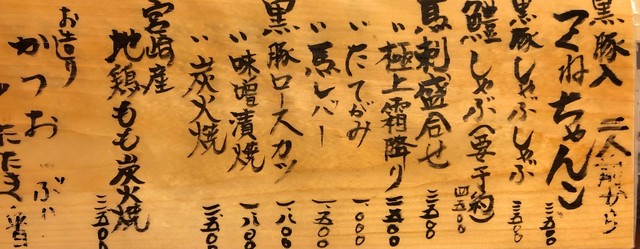 黒豚入 二人前から
つくねちゃんこ 二、五〇〇
黒豚しゃぶしゃぶ 三、五〇〇
鱧しゃぶ(要予約) 四、五〇〇
馬刺盛合せ 二、五〇〇
〃極上霜降り 二、五〇〇
〃たてがみ 一、〇〇〇
〃馬レバー 一、五〇〇
黒豚ロースカツ 一、八〇〇
〃味噌漬焼 一、八〇〇
〃炭火焼 二、五〇〇
宮崎産
地鶏もも炭火焼 二、五〇〇
お造り
かつお
たたき